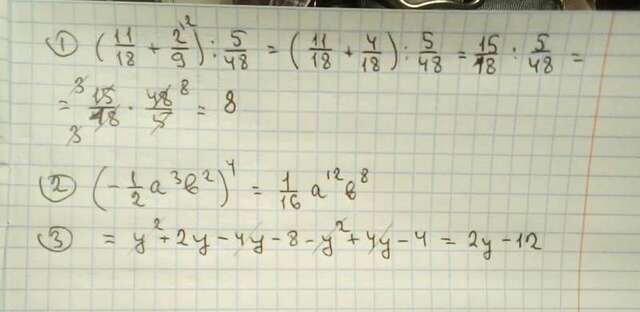 ① (11/18 + 2/9 ²) : 5/48 = (11/18 + 4/18) : 5/48 = 15/18 : 5/48 =
= 15/18 ³₃ · 48/5 ⁸ = 8
② (-1/2 a³b²)⁴ = 1/16 a¹²b⁸
③ = y² + 2y - 4y - 8 - y² + 4y - 4 = 2y - 12